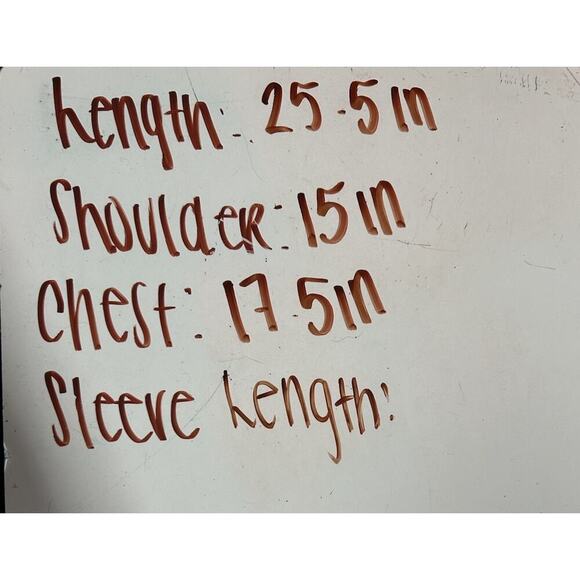 Length: 25.5 in
Shoulder: 15 in
Chest: 17.5 in
Sleeve Length: